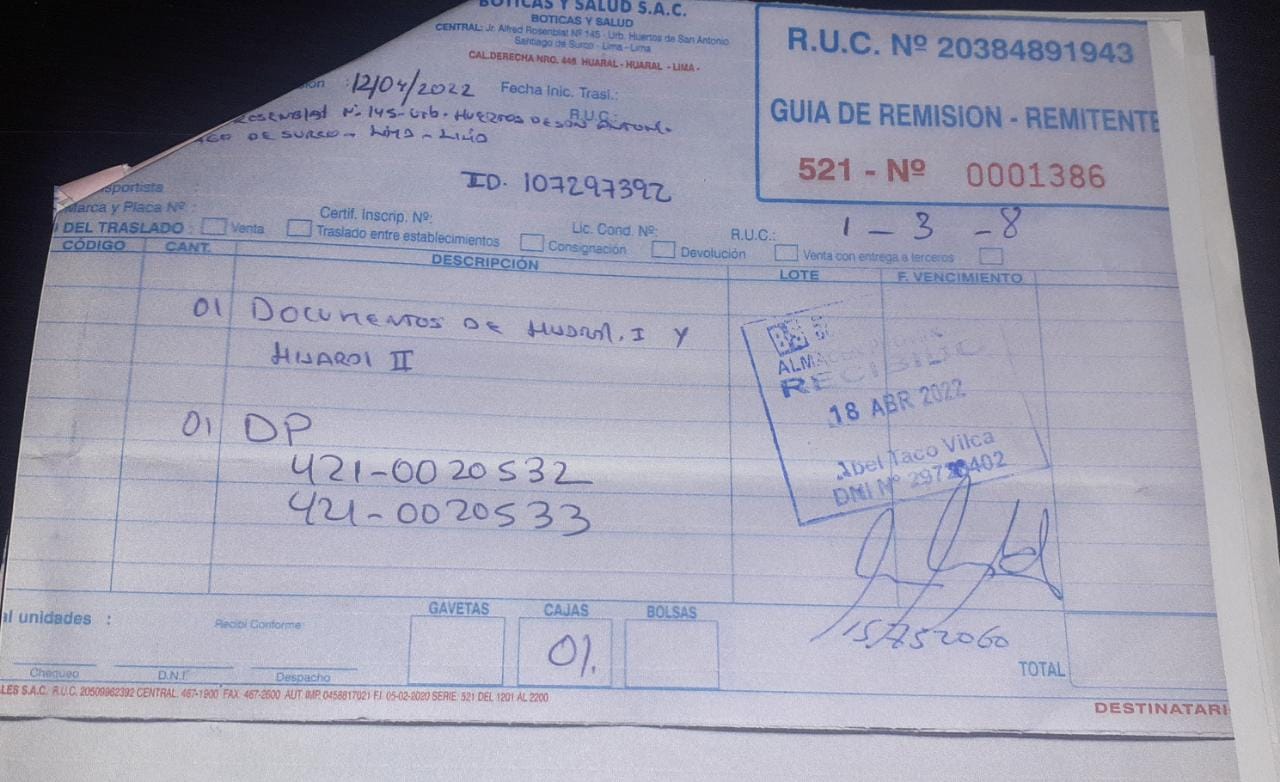 BOTICAS Y SALUD S.A.C.
BOTICAS Y SALUD
CENTRAL: Jr. Alfred Rosenblat Nº 145 - Urb. Huertos de San Antonio
Santiago de Surco - Lima - Lima
CAL.DERECHA NRO. 446 HUARAL - HUARAL - LIMA -
R.U.C. Nº 20384891943
GUIA DE REMISION - REMITENTE
521 - Nº 0001386
: 12/04/2022 Fecha Inic. Trasl.:
Nº 145 - Urb. HUERTOS DE SAN R.U.C.:
DE SURCO - LIMA - LIMA
ID. 107297392
sportista
Marca y Placa Nº : Certif. Inscrip. Nº: Lic. Cond. Nº: R.U.C.: 1 - 3 - 8
DEL TRASLADO : Venta Traslado entre establecimientos Consignación Devolución Venta con entrega a terceros
CÓDIGO CANT. DESCRIPCIÓN LOTE F. VENCIMIENTO
01 DOCUMENTOS DE HUARAL I Y
HUARAL II
01 DP
421-0020532
421-0020533
ALMACEN
RECIBIDO
18 ABR 2022
Abel Taco Vilca
DNI Nº 402
15752060
al unidades : Recibí Conforme: GAVETAS CAJAS BOLSAS
01.
TOTAL
Chequeo D.N.I. Despacho
LES S.A.C. R.U.C. 20509962392 CENTRAL. 467-1900 FAX. 467-2600 AUT. IMP. 0458817021 F.I. 05-02-2020 SERIE: 521 DEL 1201 AL 2200
DESTINATARI